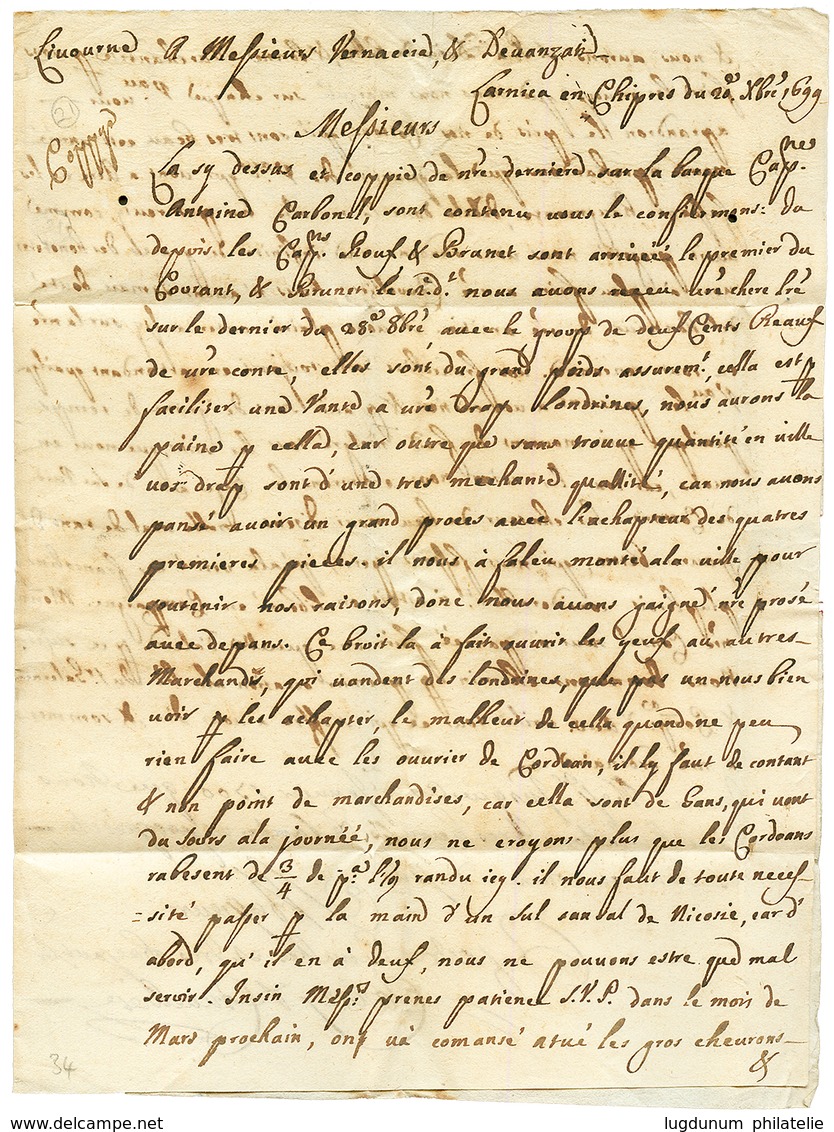 Livourne A Messieurs Vernaccia, & Deuanzati
Larnica en Chipres du 20e. Xbre 1699
21
Messieurs
Co
La sy dessus et coppie de nre derniere sur la barque Capne.
Antoine Carbonel, sont contenu vous le confirmons: du
depuis les Capns. Rouf & Brunet sont arriuéé le premier du
Courant, & Brunet le 12.dt. nous auons receu vre chere lre
sur le dernier du 28e 8bre auec le group de deuf Cents Reauf
de vre conte, elles sont du grand poids assuremt., cella est p
faciliter une Vante a vre Drap londrines, nous aurons la
paine p cella, car outre que sans trouue quantité en ville
vos drap sont d'une tres mechante quallité, car nous auons
pansé auoir un grand proces auec l'achapteur des quatres
premieres pieces. il nous à faleu monté ala ville pour
soutenir nos raisons, donc nous auons gaigné nre prosé
auec depans. Ce broit la à fait ouurir les yeuf au autres
Marchands, qui vandent des londrines, que pas un nous bien
voir p les achapter, le malleur de cella quond ne peu
rien faire auec les ouurier de Cordoan, il ly faut de contant
& non point de marchandises, car cella sont de Gans, qui vont
du Jours ala journéé, nous ne croyons plus que les Cordoans
rabesent de 3/4 de pa. randu icy. il nous faut de toute neces-
=sité passer p la main d'un sul sansal de Nicosie, car d'
abord, qu'il en à deuf, nous ne pouuons estre que mal
seruir. Insin Messrs prenes patience S.V.P. dans le mois de
Mars prochain, ont và comansé atué les gros cheurons
&
34
www.delcampe.net
lugdunum philatelie